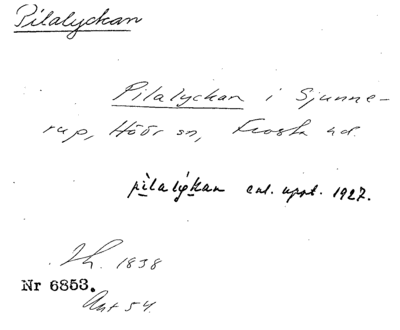 Pilalyckan
Pilalyckan i Sjunne-
rup, Höör sn, Frosta hd.
pìlalýkan enl. uppt. 1927.
Th. 1838
Nr 6853.
Ant 54.